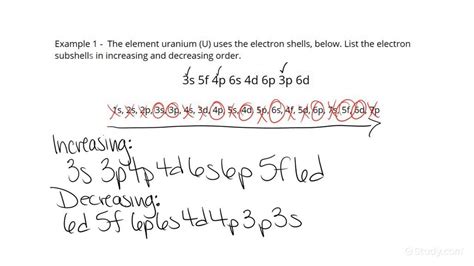 Example 1 - The element uranium (U) uses the electron shells, below. List the electron
subshells in increasing and decreasing order.
3s 5f 4p 6s 4d 6p 3p 6d
1s, 2s, 2p, 3s, 3p, 4s, 3d, 4p, 5s, 4d, 5p, 6s, 4f, 5d, 6p, 7s, 5f, 6d, 7p
Increasing:
3s 3p 4p 4d 6s 6p 5f 6d
Decreasing:
6d 5f 6p 6s 4d 4p 3p 3s
Study.com